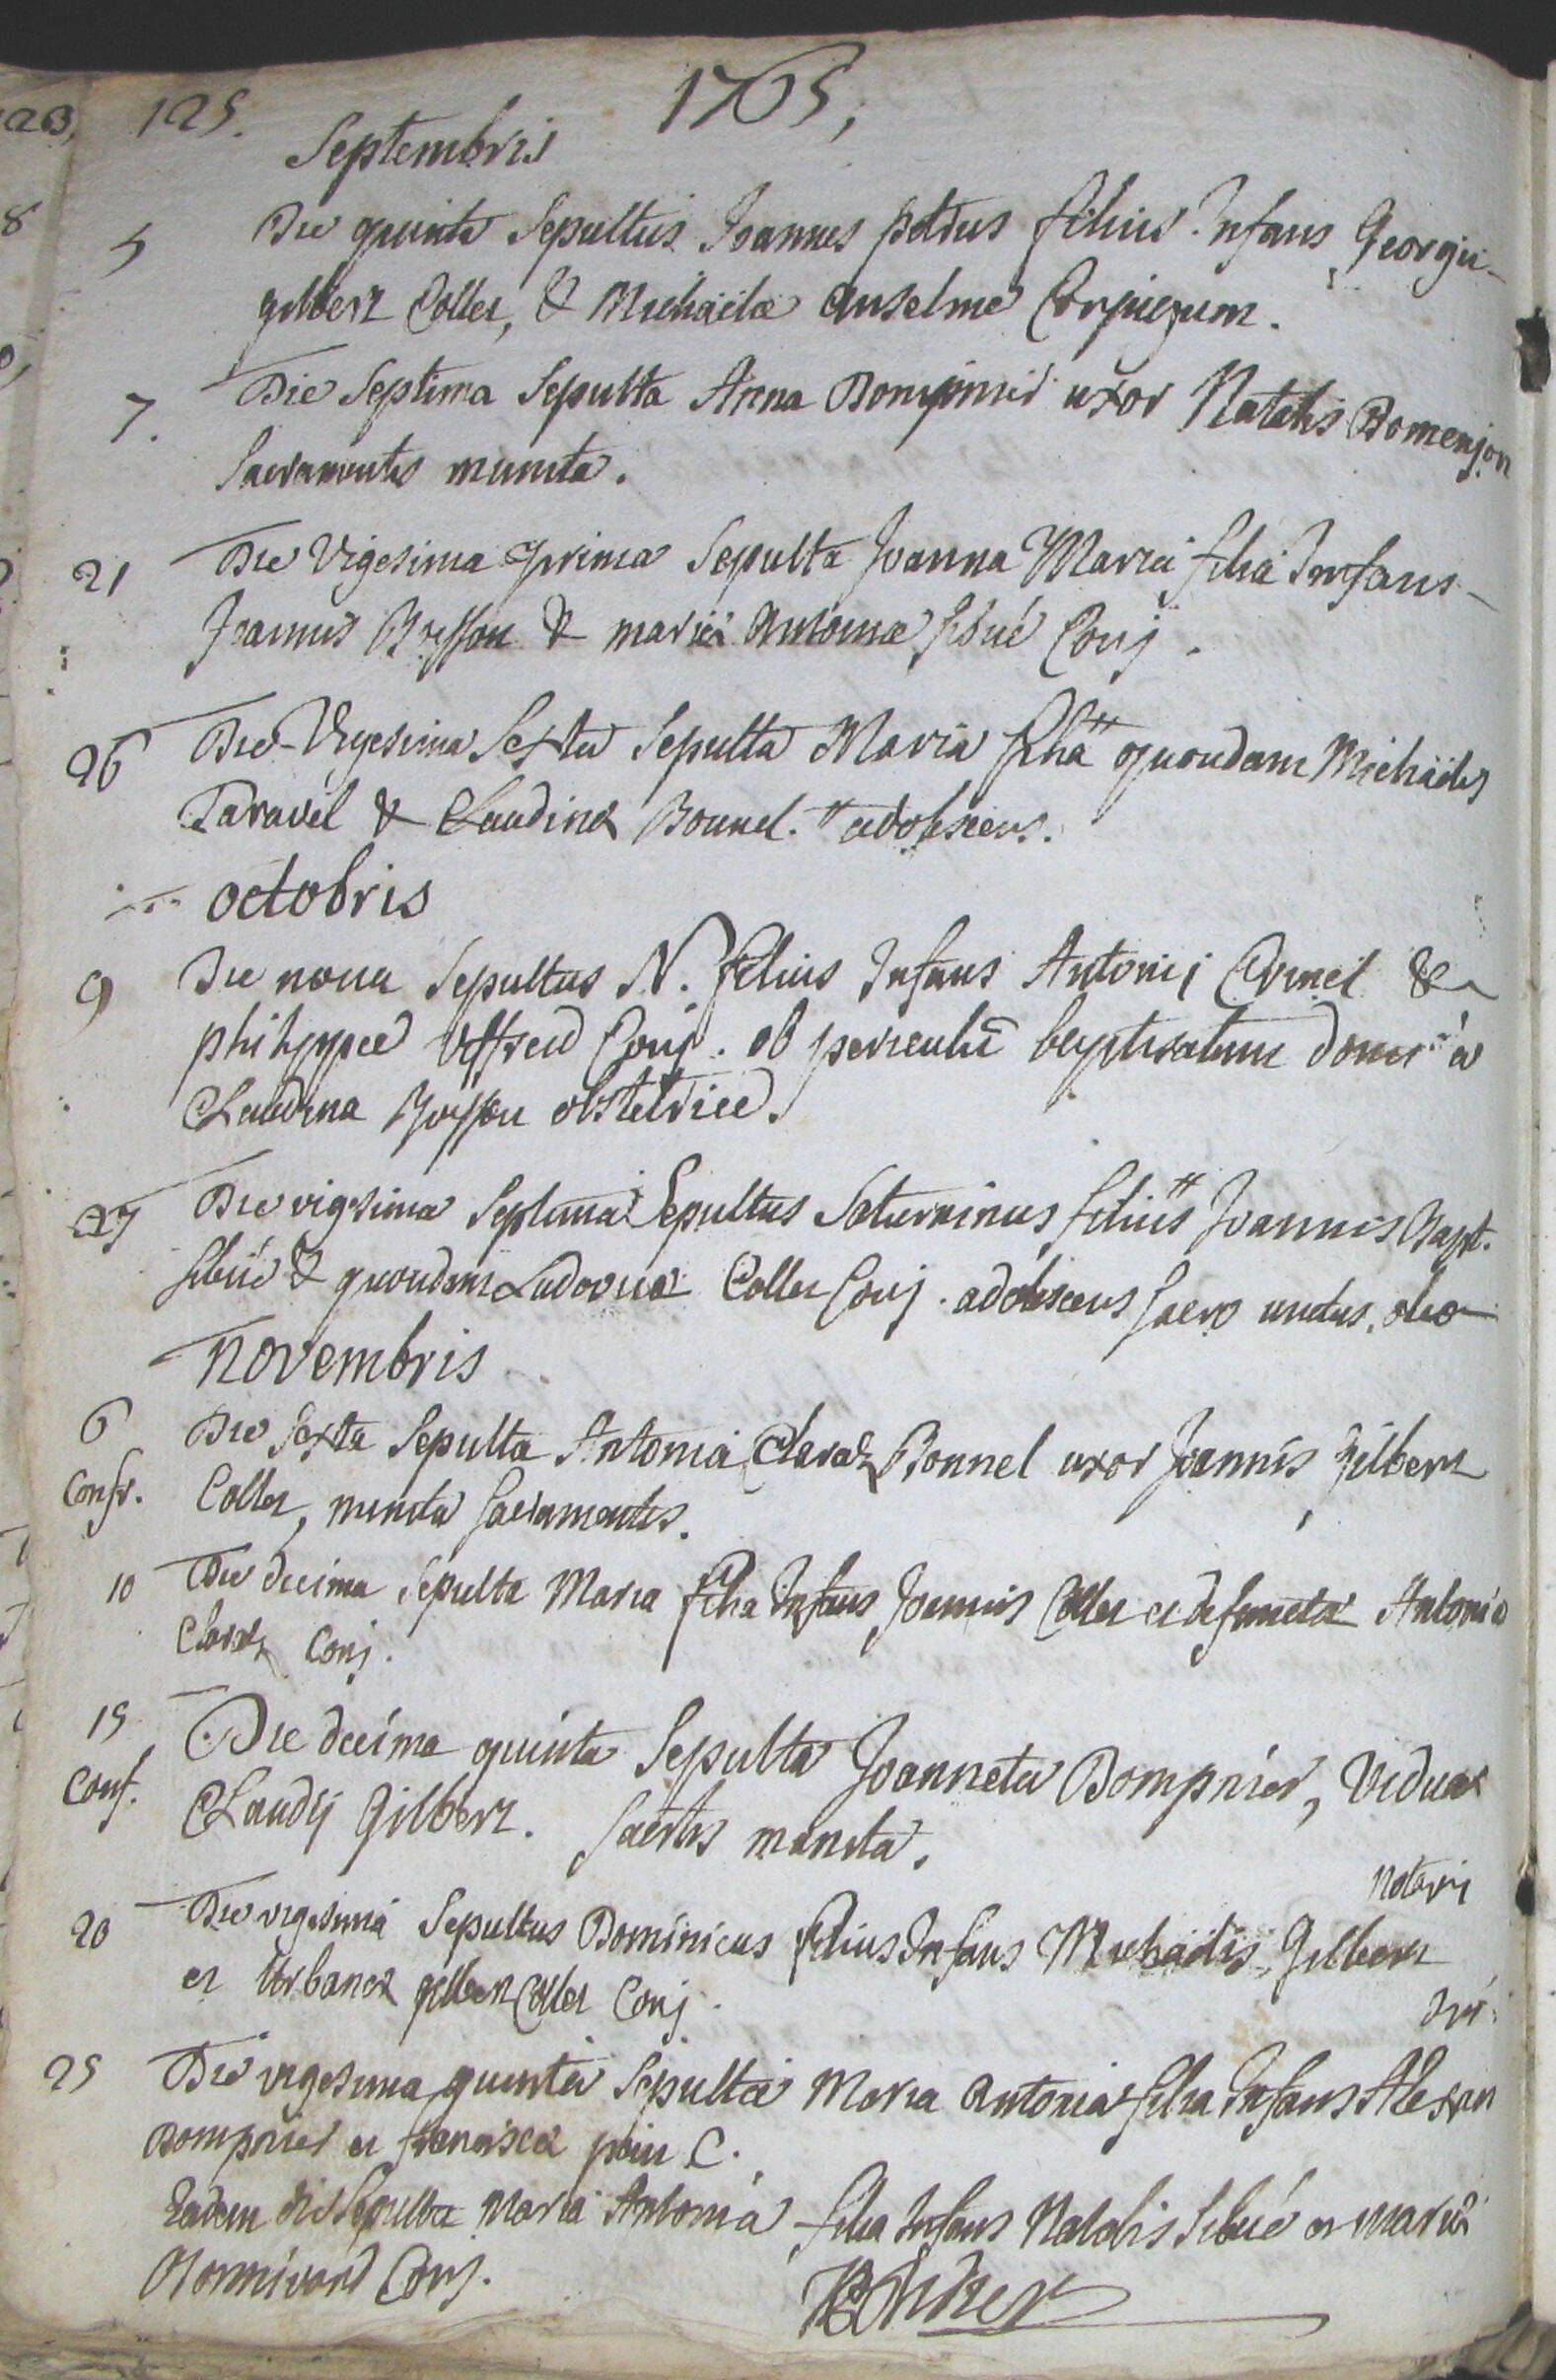 125. 1765,
Septembris
5 Die quinta Sepultus Joannes petrus filius Infans Georgii
gilbert Collet, & Michaelæ anselme Conjugum.
7. Die Septima Sepulta Anna Domprier uxor Natalis Domenjon
Sacramentis munita.
21 Die Vigesima prima Sepulta Joanna Maria filia Infans
Joannis Bresson & mariæ Antoniæ sibué Conj.
26 Die Vigesima Sexta Sepulta Maria filia" quondam Michaelis
Taravel & Claudinæ Bonnel. " adolescens.
octobris
9 Die nona Sepultus N. filius Infans Antonij &
philippæ Conj. ob periculū baptisatum domi à
Claudina obstetrice.
27 Die vigesima Septima Sepultus Saturninus filius" Joannis Bapt.
sibué & quondam Ludovicæ Collet Conj. adolescens sacro unctus oleo
Novembris
6 Die Sexta Sepulta Antonia Claraz Bonnel uxor Joannis gilbert
Confr. Collet, munita Sacramentis.
10 Die decima Sepulta Maria filia Infans Joannis Collet et defunctæ Antoniæ
Claraz Conj.
15 Die decima quinta Sepulta Joanneta Domprier, Vidua
Conf. Claudij Gilbert. Sacrtis munita.
Notarij
20 Die vigesima Sepultus Dominicus filius Infans Michaelis Gilbert
et Urbanæ gilbert Collet Conj.
dri
25 Die vigesima quinta Sepulta Maria Antonia filia Infans Alexan
Domprier et franciscæ C.
Eadem die Sepulta Maria Antonia filia Infans Natalis Sibué et Mariæ
Conj.